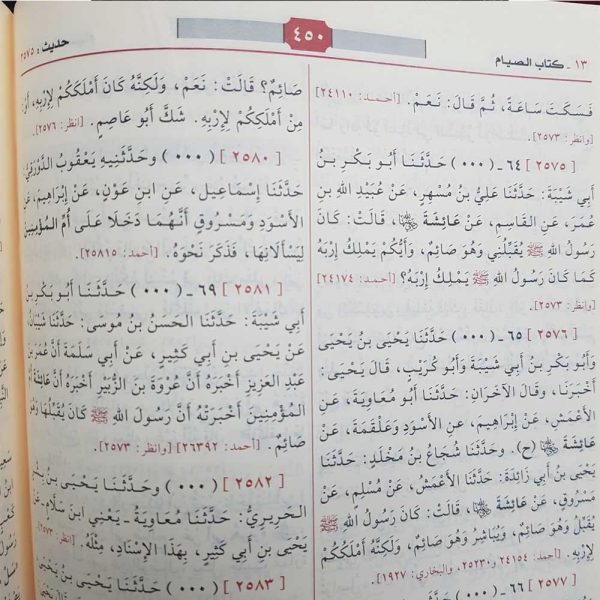 ١٣ - كتاب الصيام
٤٥٠
حديث: ٢٥٧٥
فَسَكَتَ سَاعَةً، ثُمَّ قَالَ: نَعَمْ. [أحمد: ٢٤١١٠]
[وانظر: ٢٥٧٣].
[ ٢٥٧٥ ] ٦٤ - ( ٠٠٠ ) حَدَّثَنَا أَبُو بَكْرِ بْنُ
أَبِي شَيْبَةَ: حَدَّثَنَا عَلِيُّ بْنُ مُسْهِرٍ، عَنْ عُبَيْدِ اللهِ بْنِ
عُمَرَ، عَنِ القَاسِمِ، عَنْ عَائِشَةَ رضي الله عنها، قَالَتْ: كَانَ
رَسُولُ اللهِ ﷺ يُقَبِّلُنِي وَهُوَ صَائِمٌ، وَأَيُّكُمْ يَمْلِكُ إِرْبَهُ
كَمَا كَانَ رَسُولُ اللهِ ﷺ يَمْلِكُ إِرْبَهُ؟ [أحمد: ٢٤١٧٤]
[وانظر: ٢٥٧٣].
[ ٢٥٧٦ ] ٦٥ - ( ٠٠٠ ) حَدَّثَنَا يَحْيَى بْنُ يَحْيَى
وَأَبُو بَكْرِ بْنُ أَبِي شَيْبَةَ وَأَبُو كُرَيْبٍ، قَالَ يَحْيَى:
أَخْبَرَنَا، وقَالَ الآخَرَانِ: حَدَّثَنَا أَبُو مُعَاوِيَةَ، عَنِ
الأَعْمَشِ، عَنْ إِبْرَاهِيمَ، عَنِ الأَسْوَدِ وَعَلْقَمَةَ، عَنْ
عَائِشَةَ رضي الله عنها (ح). وحَدَّثَنَا شُجَاعُ بْنُ مَخْلَدٍ: حَدَّثَنَا
يَحْيَى بْنُ أَبِي زَائِدَةَ: حَدَّثَنَا الأَعْمَشُ، عَنْ مُسْلِمٍ، عَنْ
مَسْرُوقٍ، عَنْ عَائِشَةَ رضي الله عنها، قَالَتْ: كَانَ رَسُولُ اللهِ ﷺ
يُقَبِّلُ وَهُوَ صَائِمٌ، وَيُبَاشِرُ وَهُوَ صَائِمٌ، وَلَكِنَّهُ أَمْلَكُكُمْ
لِإِرْبِهِ. [أحمد: ٢٤١٥٤ و٢٥٢٣٠، والبخاري: ١٩٢٧].
[ ٢٥٧٧ ] ٦٦ - ( ٠٠٠ ) حَدَّثَنَا
صَائِمٌ؟ قَالَتْ: نَعَمْ، وَلَكِنَّهُ كَانَ أَمْلَكَكُمْ لِإِرْبِهِ، أَوْ:
مِنْ أَمْلَكِكُمْ لِإِرْبِهِ. شَكَّ أَبُو عَاصِمٍ. [انظر: ٢٥٧٦].
[ ٢٥٨٠ ] ( ٠٠٠ ) وحَدَّثَنِيهِ يَعْقُوبُ الدَّوْرَقِيُّ:
حَدَّثَنَا إِسْمَاعِيلُ، عَنِ ابْنِ عَوْنٍ، عَنْ إِبْرَاهِيمَ، عَنِ
الأَسْوَدِ وَمَسْرُوقٍ أَنَّهُمَا دَخَلَا عَلَى أُمِّ المُؤْمِنِينَ
لِيَسْأَلَانِهَا، فَذَكَرَ نَحْوَهُ. [أحمد: ٢٥٨١٥].
[ ٢٥٨١ ] ٦٩ - ( ٠٠٠ ) حَدَّثَنَا أَبُو بَكْرِ بْنُ
أَبِي شَيْبَةَ: حَدَّثَنَا الحَسَنُ بْنُ مُوسَى: حَدَّثَنَا شَيْبَانُ،
عَنْ يَحْيَى بْنِ أَبِي كَثِيرٍ، عَنْ أَبِي سَلَمَةَ أَنَّ عُمَرَ بْنَ
عَبْدِ العَزِيزِ أَخْبَرَهُ أَنَّ عُرْوَةَ بْنَ الزُّبَيْرِ أَخْبَرَهُ أَنَّ عَائِشَةَ أُمَّ
المُؤْمِنِينَ أَخْبَرَتْهُ أَنَّ رَسُولَ اللهِ ﷺ كَانَ يُقَبِّلُهَا وَهُوَ
صَائِمٌ. [أحمد: ٢٦٣٩٢] [وانظر: ٢٥٧٣].
[ ٢٥٨٢ ] ( ٠٠٠ ) وحَدَّثَنَا يَحْيَى بْنُ بِشْرٍ
الحَرِيرِيُّ: حَدَّثَنَا مُعَاوِيَةُ - يَعْنِي ابْنَ سَلَّامٍ - عَنْ
يَحْيَى بْنِ أَبِي كَثِيرٍ، بِهَذَا الإِسْنَادِ، مِثْلَهُ. [انظر:
[ ٢٥٨٣ ] ( ٠٠٠ ) حَدَّثَنَا يَحْيَى